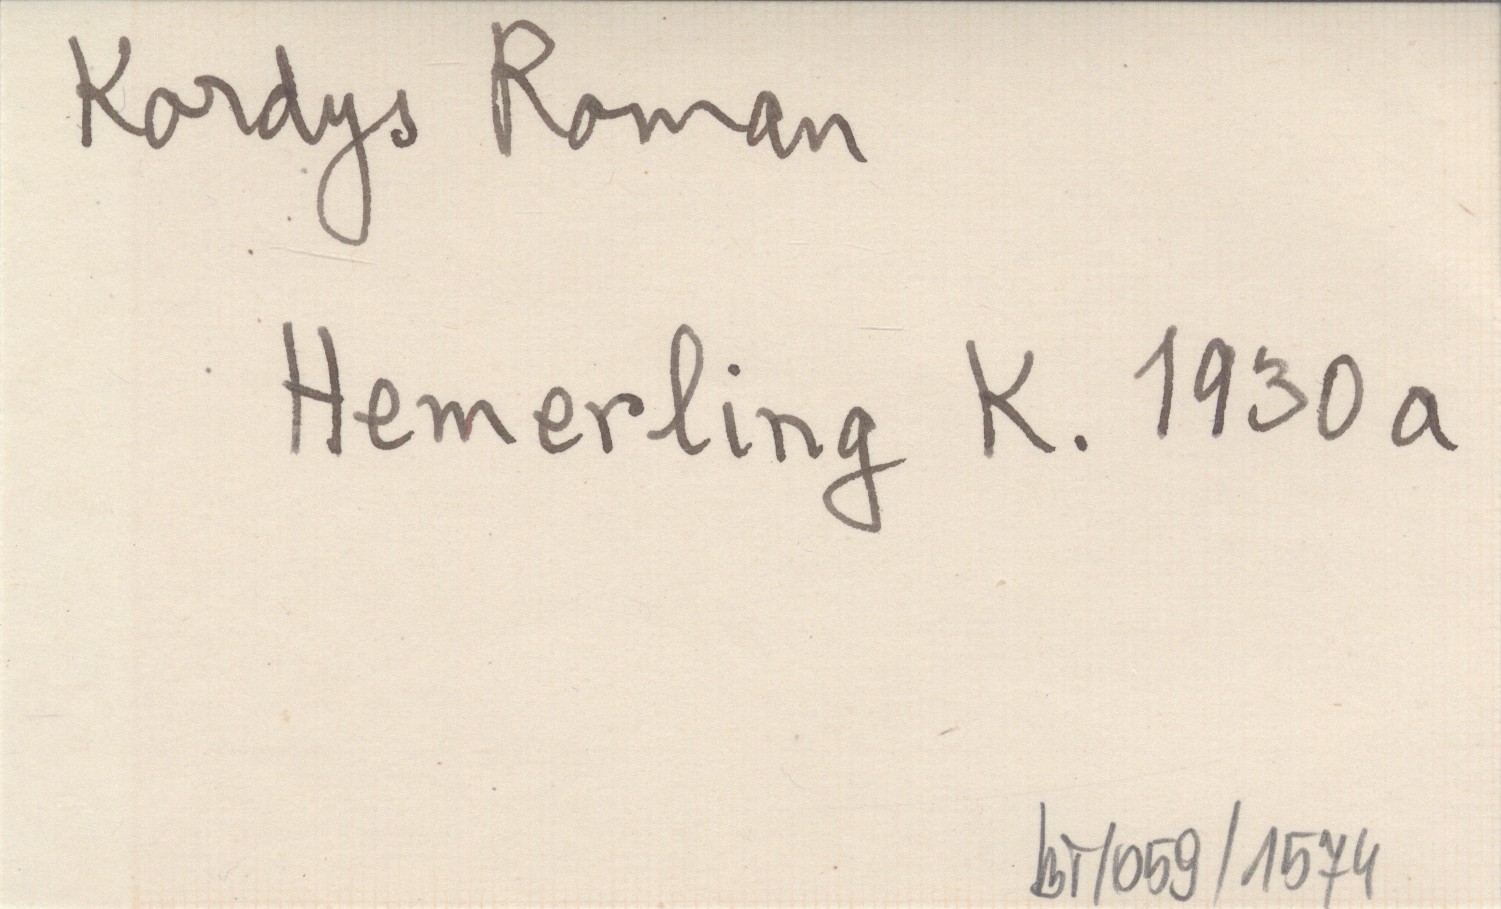 Kordys Roman
Hemerling K. 1930 a
bT/059/1574